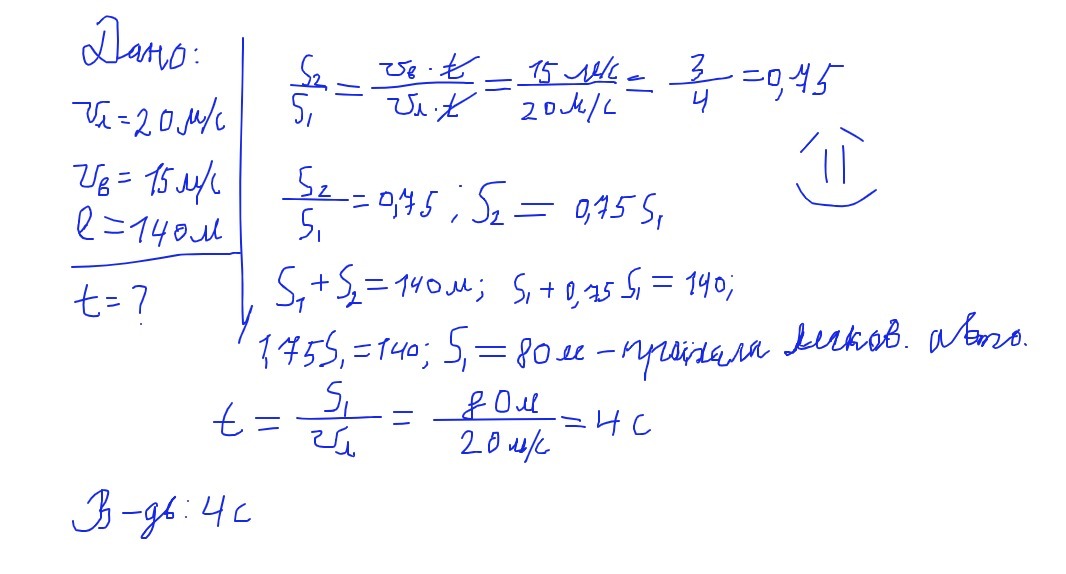 Дано:
υл = 20 м/с
υв = 15 м/с
l = 140 м
t = ?
S₂/S₁ = υв · t / υл · t = 15 м/с / 20 м/с = 3/4 = 0,75
S₂/S₁ = 0,75 ; S₂ = 0,75 S₁
S₁ + S₂ = 140 м; S₁ + 0,75 S₁ = 140;
1,75 S₁ = 140; S₁ = 80 м – проїхала легков. авто.
t = S₁/υл = 80 м / 20 м/с = 4 с
В-дь: 4 с